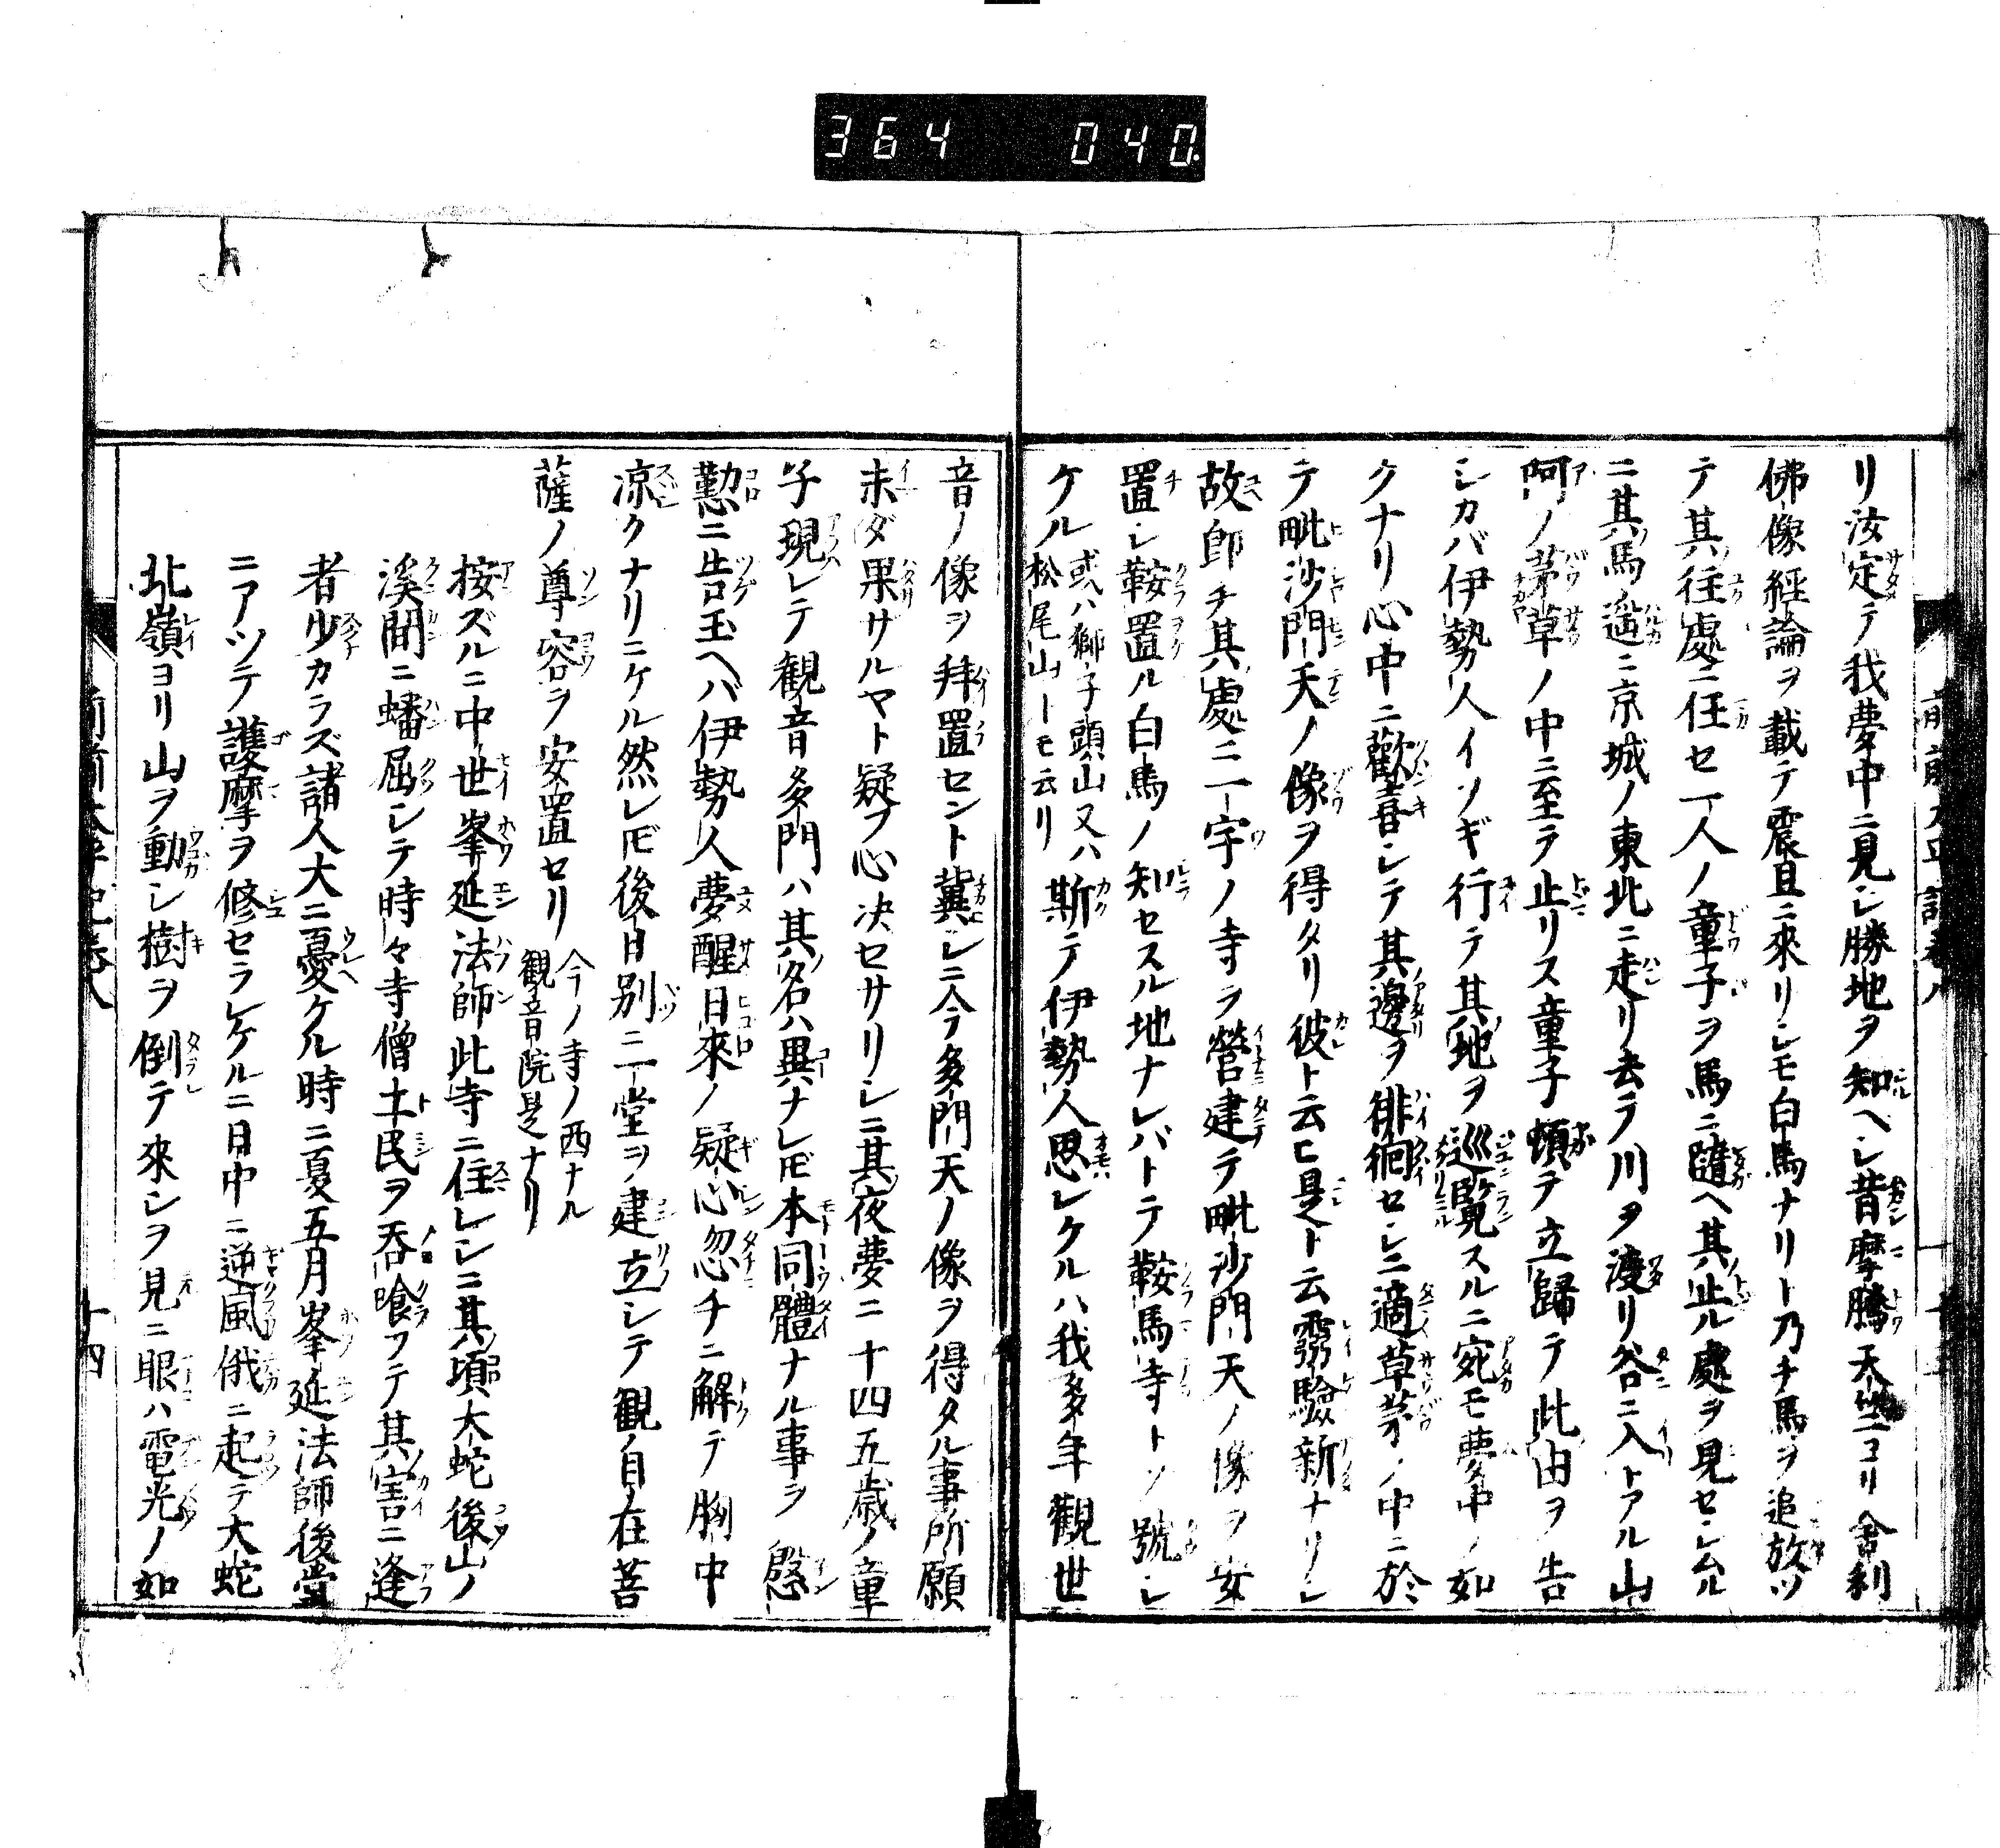 364 040.
リ汝定テ我夢中ニ見シ勝地ヲ知ヘシ昔摩騰天竺ヨリ舎利
佛像經論ヲ載テ震旦ニ來リシモ白馬ナリト乃チ馬ヲ追放ツ
テ其往處ニ任セ一人ノ童子ヲ馬ニ隨ヘ其止ル處ヲ見セシムル
ニ其馬遥ニ京城ノ東北ニ走リ去テ川ヲ渡リ谷ニ入トアル山
阿ノ茅草ノ中ニ至テ止リス童子頓テ立歸テ此由ヲ告
シカバ伊勢人イソギ行テ其地ヲ巡覧スルニ宛モ夢中ノ如
クナリ心中ニ歡喜シテ其邊ヲ徘徊セシニ適草茅ノ中ニ於
テ毗沙門天ノ像ヲ得タリ彼ト云ヒ是ト云靈驗新ナリシ
故即チ其處ニ一宇ノ寺ヲ營建テ毗沙門天ノ像ヲ安
置シ鞍置ル白馬ノ知セスル地ナレバトテ鞍馬寺トソ號シ
ケル或ハ獅子頭山又ハ松尾山トモ云リ斯テ伊勢人思シケルハ我多年觀世
音ノ像ヲ拜置セント冀シニ今多門天ノ像ヲ得タル事所願
未ダ果サルヤト疑フ心决セサリシニ其夜夢ニ十四五歳ノ童
子現レテ観音多門ハ其名ハ異ナレ𪜈本同體ナル事ヲ慇
懃ニ告玉ヘバ伊勢人夢醒日來ノ疑心忽チニ解テ胸中
凉クナリニケル然レ𪜈後日別ニ一堂ヲ建立シテ観自在菩
薩ノ尊容ヲ安置セリ今ノ寺ノ西ナル観音院是ナリ
按ズルニ中世峯延法師此寺ニ住シシニ其頃大蛇後山ノ
溪間ニ蟠屈シテ時々寺僧土民ヲ呑喰フテ其害ニ逢
者少カラズ諸人大ニ憂ケル時ニ夏五月峯延法師後堂
ニアツテ護摩ヲ修セラレケルニ日中ニ逆風俄ニ起テ大蛇
北嶺ヨリ山ヲ動シ樹ヲ倒テ來シヲ見ニ眼ハ電光ノ如
十四